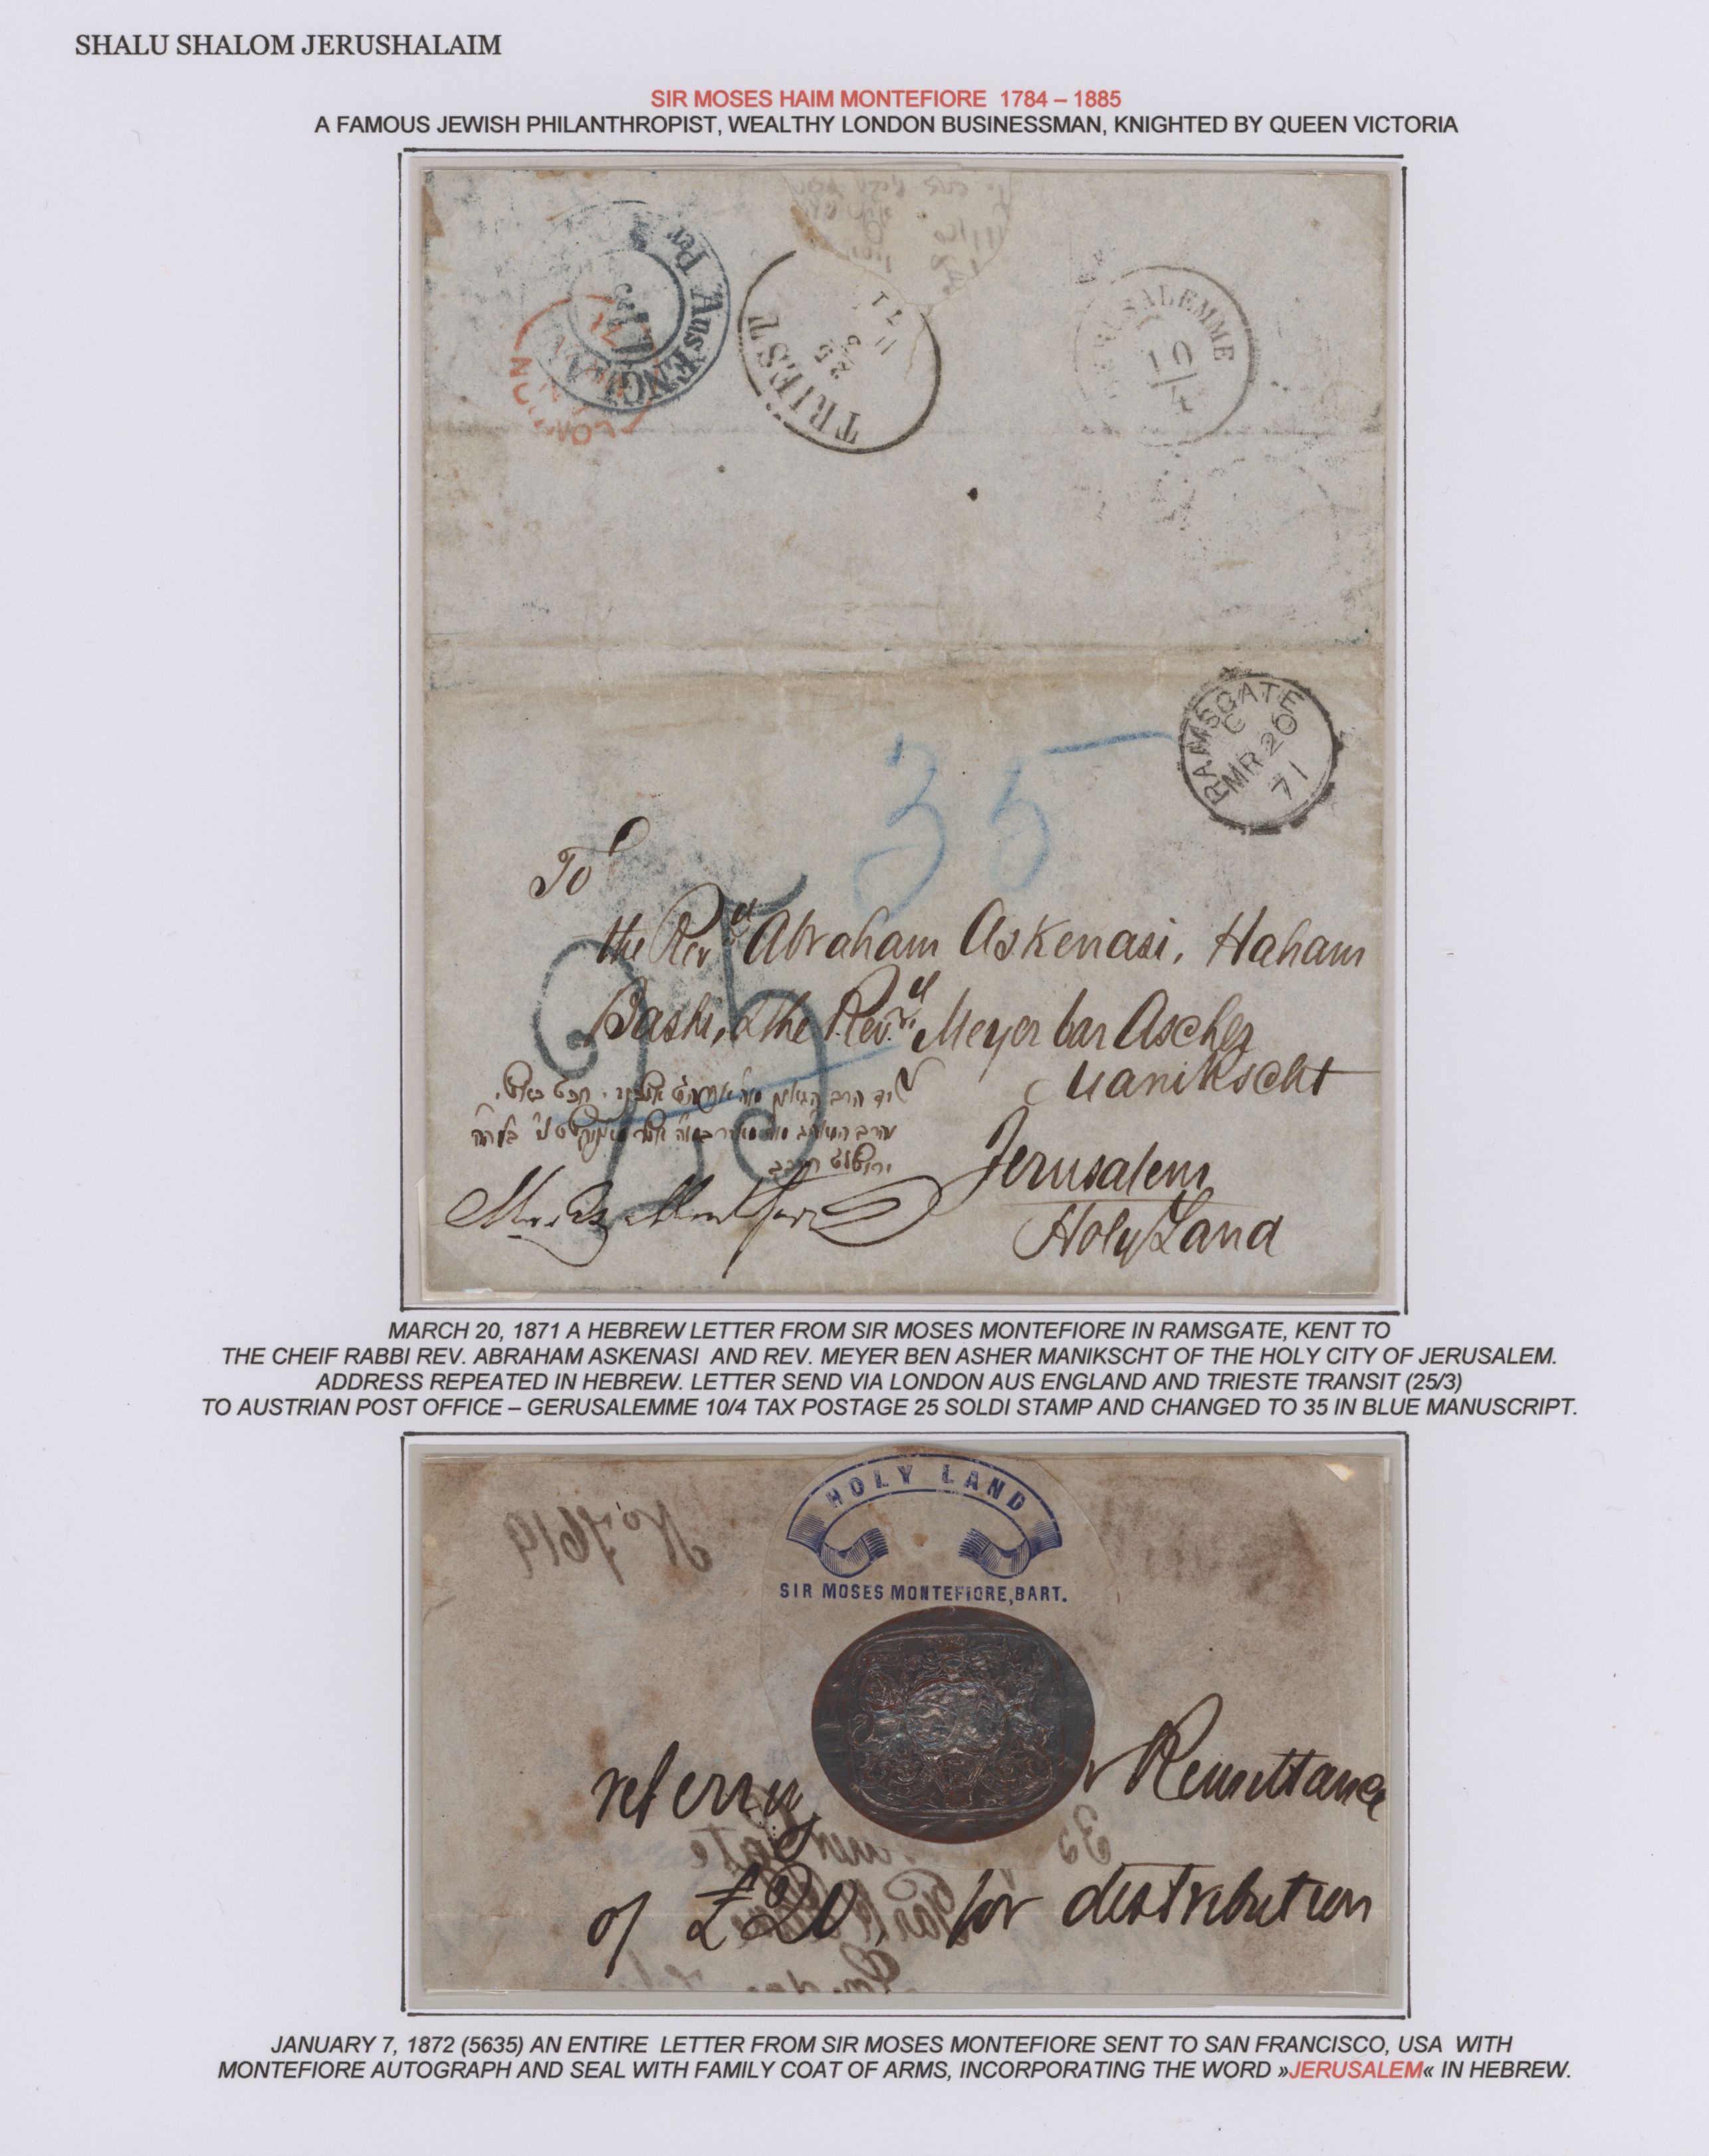 SHALU SHALOM JERUSHALAIM
SIR MOSES HAIM MONTEFIORE 1784 – 1885
A FAMOUS JEWISH PHILANTHROPIST, WEALTHY LONDON BUSINESSMAN, KNIGHTED BY QUEEN VICTORIA
Per Aus ENGLAN
LONDON
TRIEST
25
3
71
GERUSALEMME
10/4
RAMSGATE
C
MR 20
71
35
To
the Revd Abraham Askenasi, Haham
Bashi, & the Revd. Meyer bar Ascher
Manikscht
Jerusalem
Holy Land
25
MARCH 20, 1871 A HEBREW LETTER FROM SIR MOSES MONTEFIORE IN RAMSGATE, KENT TO
THE CHEIF RABBI REV. ABRAHAM ASKENASI AND REV. MEYER BEN ASHER MANIKSCHT OF THE HOLY CITY OF JERUSALEM.
ADDRESS REPEATED IN HEBREW. LETTER SEND VIA LONDON AUS ENGLAND AND TRIESTE TRANSIT (25/3)
TO AUSTRIAN POST OFFICE – GERUSALEMME 10/4 TAX POSTAGE 25 SOLDI STAMP AND CHANGED TO 35 IN BLUE MANUSCRIPT.
No 7619
HOLY LAND
SIR MOSES MONTEFIORE, BART.
Remittance
of £20, for distribution
JANUARY 7, 1872 (5635) AN ENTIRE LETTER FROM SIR MOSES MONTEFIORE SENT TO SAN FRANCISCO, USA WITH
MONTEFIORE AUTOGRAPH AND SEAL WITH FAMILY COAT OF ARMS, INCORPORATING THE WORD »JERUSALEM« IN HEBREW.